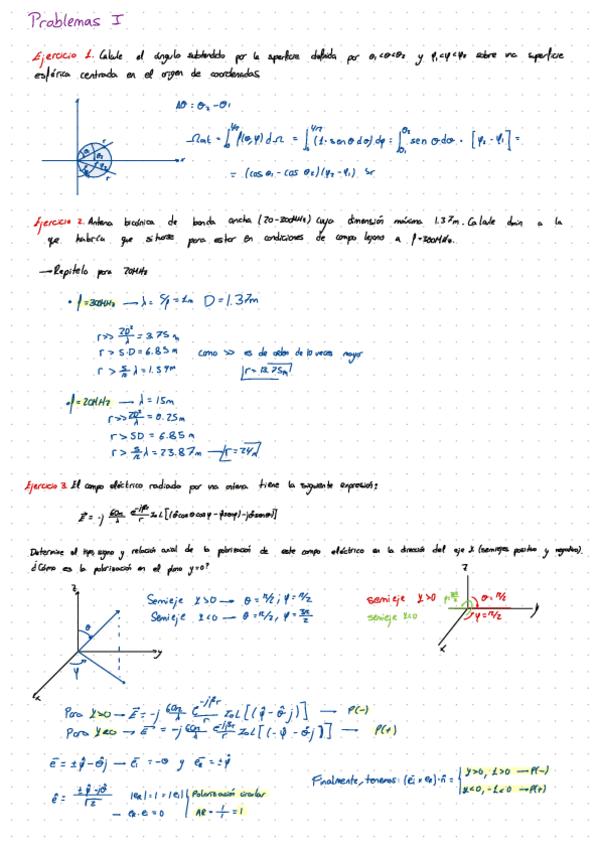 Problemas I
Ejercicio 1. Calcule el ángulo subtendido por la superficie definida por θ₁<θ<θ₂ y φ₁<φ<φ₂ sobre una superficie
esférica centrada en el origen de coordenadas
Δθ = θ₂ - θ₁
= ∫ f(θ,φ) dΩ = ∫ (1·senθ dθ) dφ = ∫ senθ dθ · [φ₂ - φ₁] =
= (cos θ₁ - cos θ₂)(φ₂ - φ₁) sr
Ejercicio 2. Antena bicónica de banda ancha (20-300MHz) cuya dimensión máxima 1.37m. Calcule dmin a la
que habría que situarse para estar en condiciones de campo lejano a f=300MHz.
→ Repítelo para 20MHz
• f=300MHz → λ = c/f = 1m D = 1.37m
r >> 2D²/λ = 3.75 m
r > 5·D = 6.85 m como >> es de orden de 10 veces mayor
r > λ = 1.59m
• f=20MHz → λ = 15m
r >> 2D²/λ = 0.25m
r > 5D = 6.85 m
r > λ = 23.87 m → r = 24m
Ejercicio 3. El campo eléctrico radiado por una antena tiene la siguiente expresión:
Determine el tipo, signo y relación axial de la polarización de este campo eléctrico en la dirección del eje Y (semiejes positivo y negativo).
¿Cómo es la polarización en el plano y=0?
z
θ
y
φ
x
Semieje Y>0 → θ = π/2; φ = π/2
Semieje Y<0 → θ = π/2, φ = 3π/2
semieje Y>0
semieje Y<0
θ = π/2
φ = π/2
z
y
x
Para Y>0 → E = -j 60π/λ e^-jβr/r I₀L[(φ̂ - θ̂j)] → P(-)
Para Y<0 → E = -j 60π/λ e^-jβr/r I₀L[(-φ̂ - θ̂j)] → P(+)
e = ±φ̂ - θ̂j → eᵢ = -θ y eᵣ = ±φ̂
ê = ±φ̂ - jθ̂ / √2
|eᵣ| = 1 = |eᵢ|
→ eᵣ·eᵢ = 0
Polarización circular
AR = 1/1 = 1
Finalmente, tenemos: (eᵢ × eᵣ)·n̂ =
y>0, 1>0 → P(-)
y<0, -1<0 → P(+)